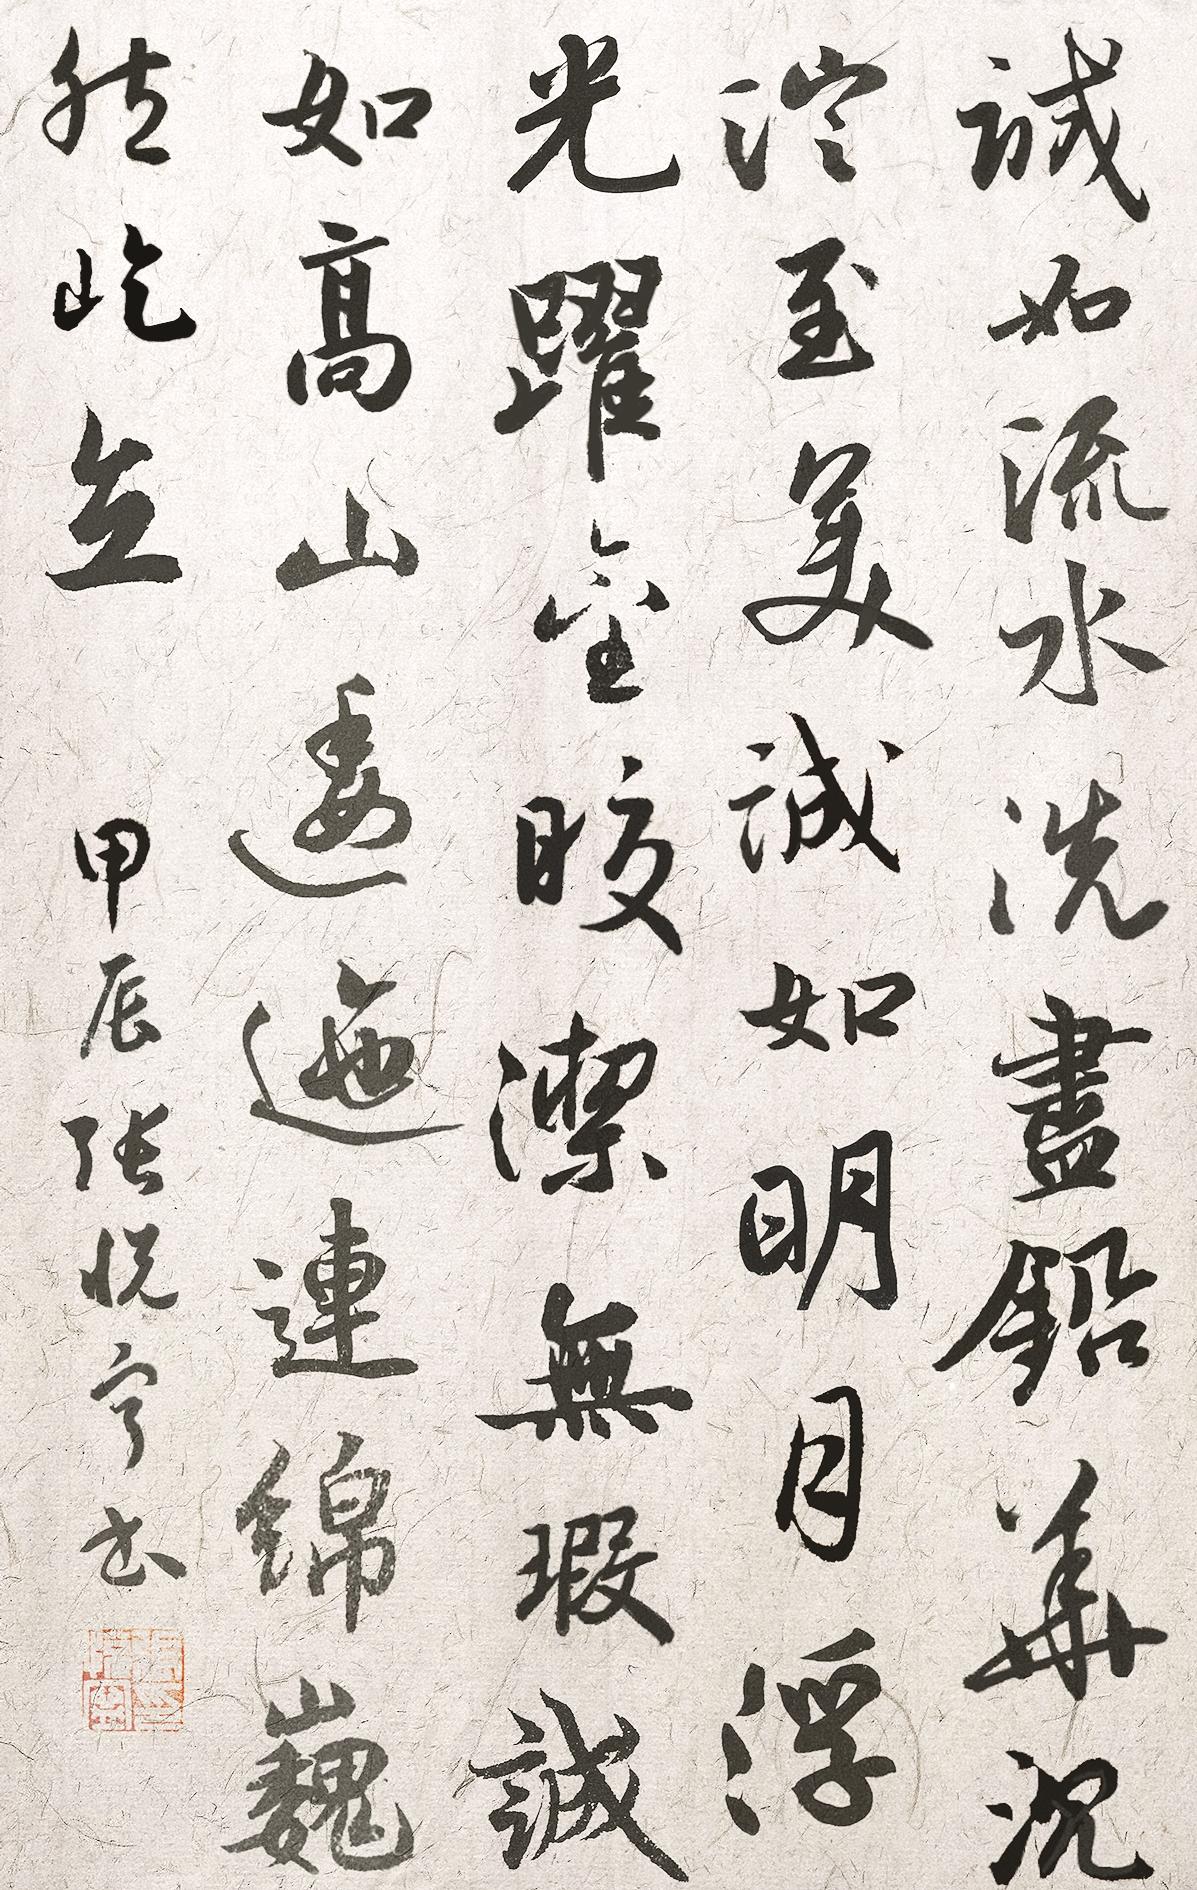 誠如流水洗盡鉛華沉
淀至美誠如明月浮
光躍金晈潔無瑕誠
如高山逶迤連綿巍
然屹立 甲辰張悦寧書